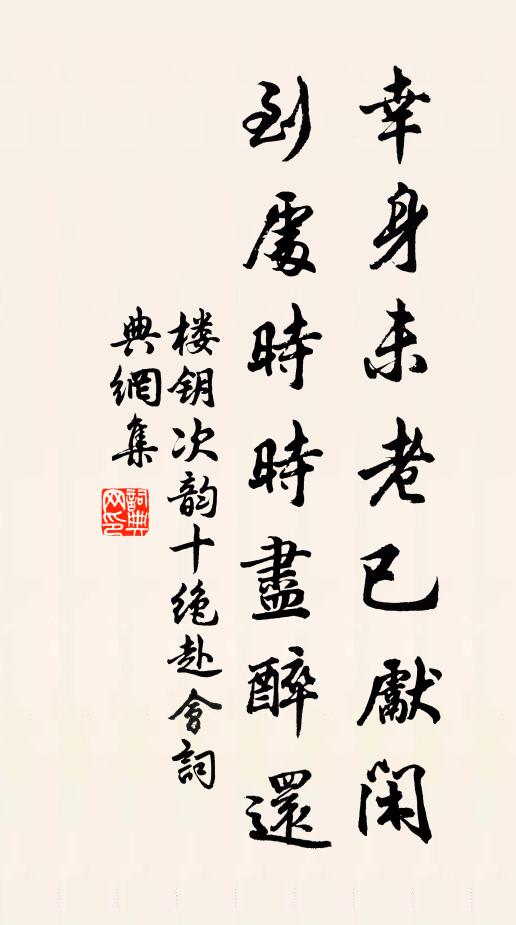 幸身未老已獻閑
到處時時盡醉還
楼钥次韵十绝赴會詞
典網集
詞典網印